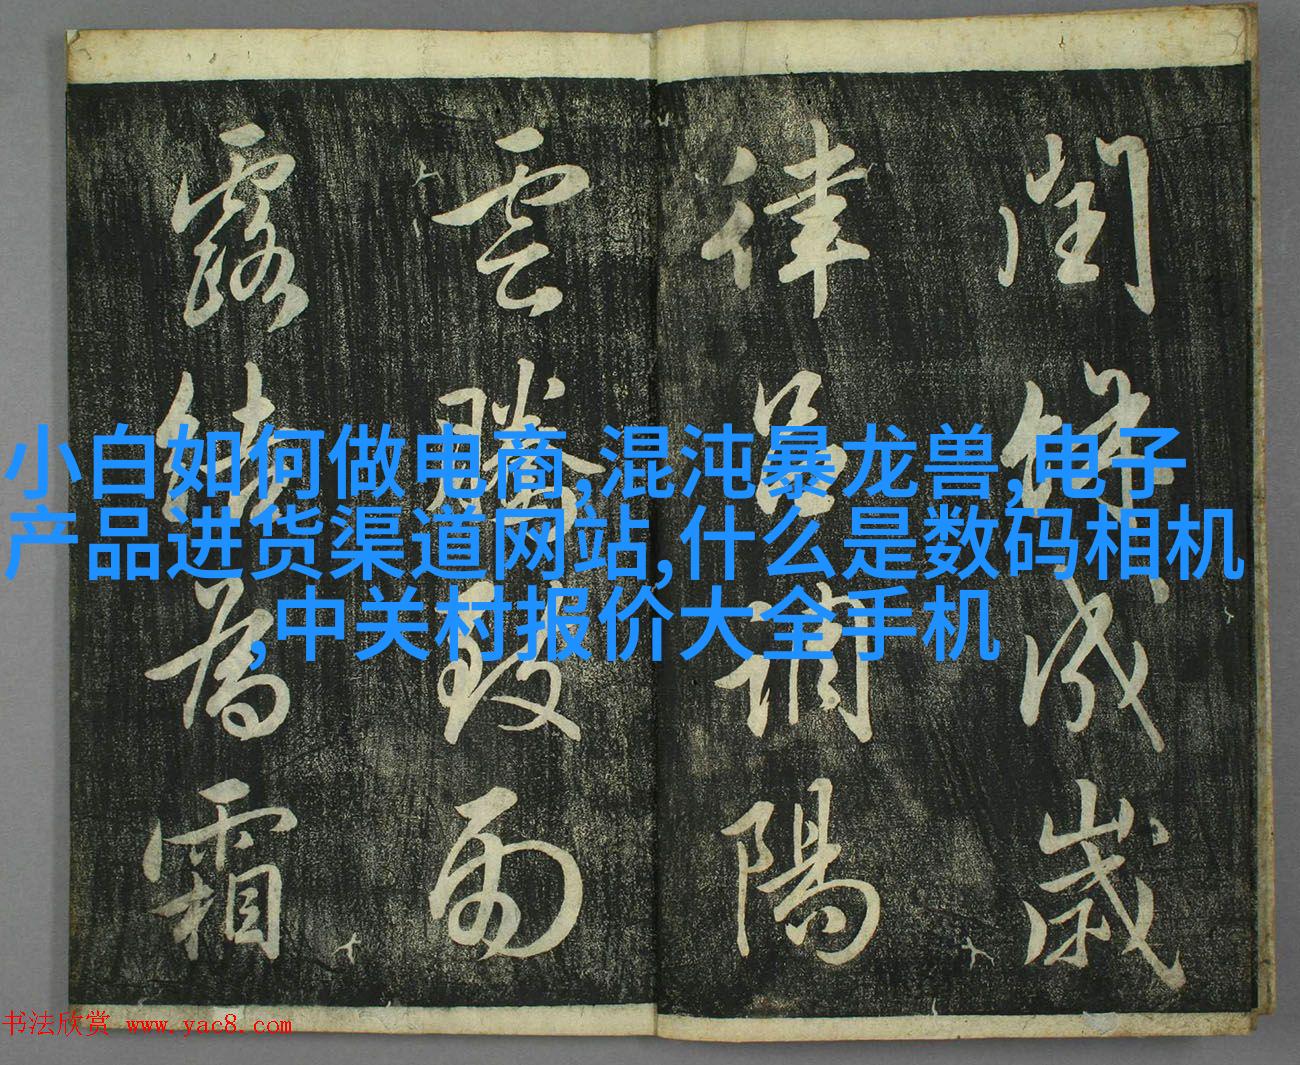 閏餘成歲
律呂調陽
雲騰致雨
露結為霜
小白如何做电商,混沌暴龙兽,电子
产品进货渠道网站,什么是数码相机
,中关村报价大全手机
书法欣赏 www.yac8.com